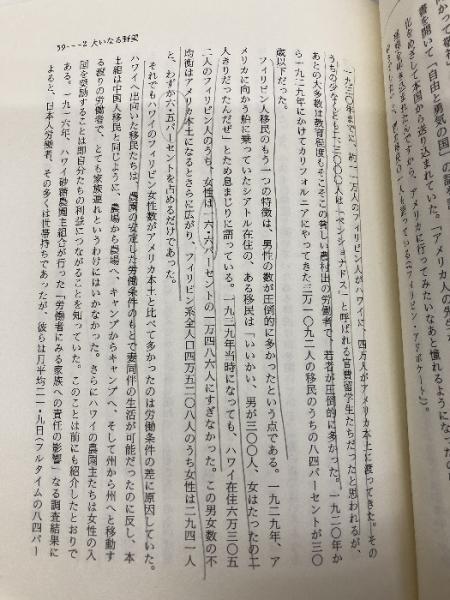 書を開いて「自由と勇気の国」の
化をめざして本国から送り込まれていた。「アメリカ人の先生
ですから、アメリカに行ってみたいなあと憧れるようになった
(『フィリピン・アドボケート』)。
59---2 大いなる野望
一九三〇年までに、約一一万人のフィリピン人がハワイに、四万人がアメリカ本土に渡ってきた。その
うちの少なくとも一万三〇〇〇人は「ペンショナドス」と呼ばれる官費留学生たちだったと思われるが、
あとの大多数は教育程度もそこそこの貧しい農村出の労働者で、若者が圧倒的に多かった。一九二〇年か
ら一九二九年にかけてカリフォルニアにやってきた三万一〇九二人の移民のうちの八四パーセントが三〇
歳以下だった。
フィリピン人移民のもう一つの特徴は、男性の数が圧倒的に多かったという点である。一九二九年、ア
メリカに向かう船に乗っていたシアトル在住の、ある移民は「いいかい、男が三〇〇人、女はたったの二
人きりだったんだぜ」とため息まじりに語っている。一九二九年当時になっても、ハワイ在住六万三〇五
二人のフィリピン人のうち、女性は一六・六パーセントの一万四八六人にすぎなかった。この男女数の不
均衡はアメリカ本土になるとさらに広がり、フィリピン系全人口四万五二〇八人のうち女性は二九四一人
と、わずか六・五パーセントを占めるだけであった。
それでもハワイのフィリピン女性数がアメリカ本土と比べて多かったのは労働条件の差に原因していた。
ハワイへ出向いた移民たちは、農園の安定した労働条件のもとで妻同伴の生活が可能だったのに反し、本
土組は中国人移民と同じように、農場から農場へ、キャンプからキャンプへ、そして州から州へと移動す
る渡りの労働者で、とても家族連れというわけにはいかなかった。さらにハワイの農園主たちは女性の入
国を奨励することは即自分たちの利益につながることを知っていた。このことは前にも紹介したとおりで
ある。一九一六年、ハワイ砂糖農園主組合が行った「労働者にみる家族への責任の影響」なる調査結果に
よると、日本人労働者、その多くは世帯持ちであったが、彼らは月平均二一・九日(フルタイムの八四パー